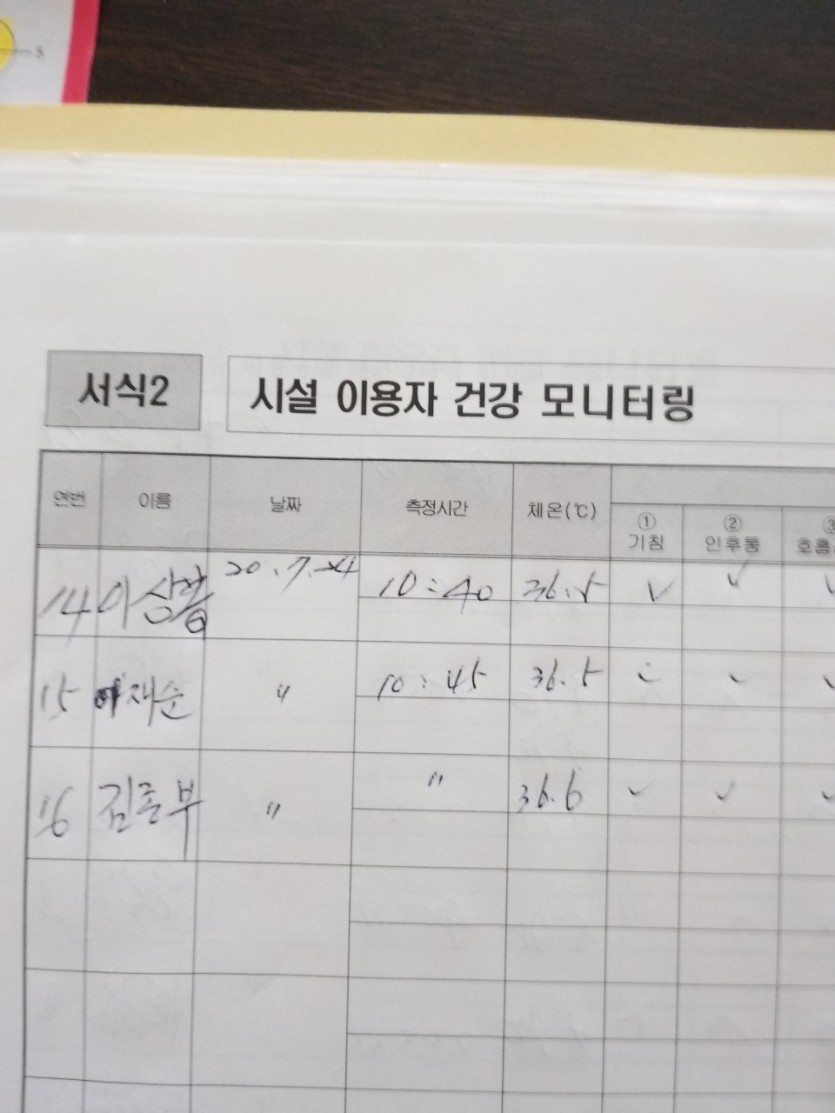 서식2 시설 이용자 건강 모니터링
연번 이름 날짜 측정시간 체온(℃)
① ② ③
기침 인후통 호흡
14 이상홍 20.7.24 10:40 36.5 ✓ ✓ ✓
15 이재순 〃 10:45 36.5 ✓ ✓ ✓
16 김종부 〃 〃 36.6 ✓ ✓ ✓